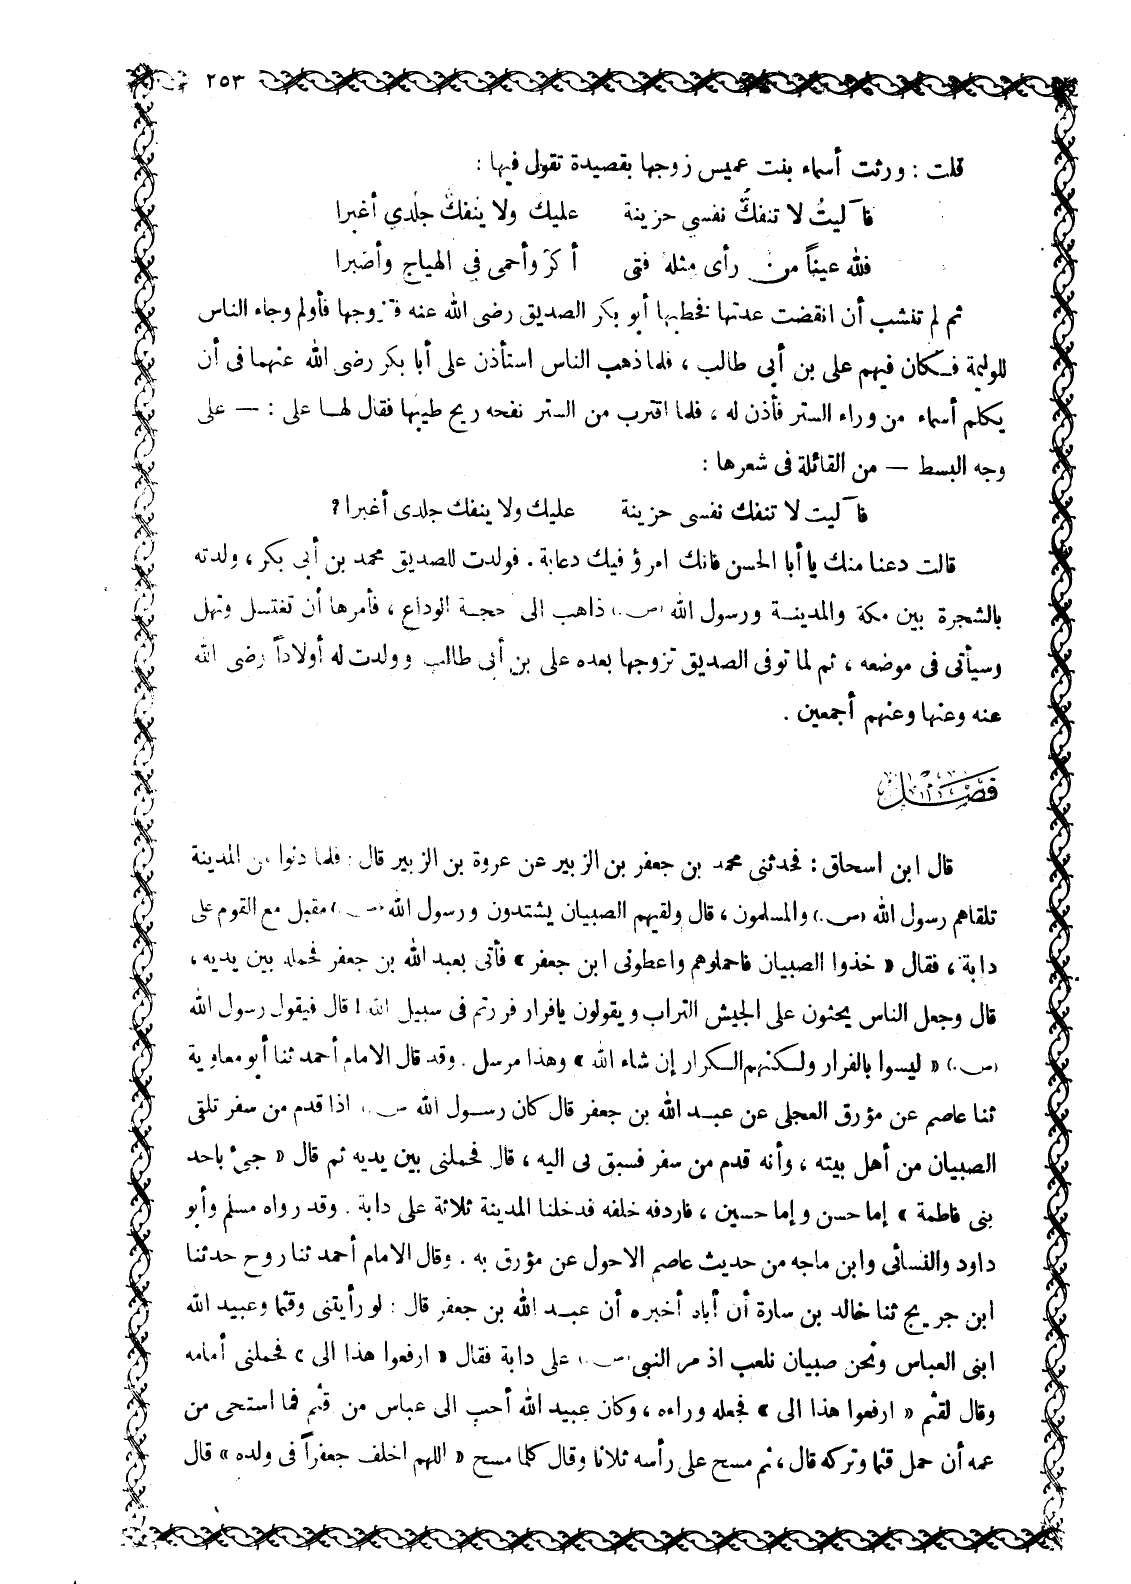 ٢٥٣
قلت : ورثت أسماء بنت عميس زوجها بقصيدة تقول فيها :
فآليتُ لا تنفكُّ نفسي حزينة عليك ولا يُنفكُّ جلدي أغبرا
فلله عيناً من رأى مثله فتى أكرّ وأحمى في الهياج وأصبرا
ثم لم تنشب أن انقضت عدتها فخطبها أبو بكر الصديق رضى الله عنه فتزوجها فأولم وجاء الناس
للوليمة فكان فيهم على بن أبي طالب ، فلما ذهب الناس استأذن على أبا بكر رضى الله عنهما فى أن
يكلم أسماء من وراء الستر فأذن له ، فلما اقترب من الستر نفحه ريح طيبها فقال لها على : — على
وجه البسط — من القائلة فى شعرها :
فآليت لا تنفك نفسى حزينة عليك ولا ينفك جلدى أغبرا ؟
قالت دعنا منك يا أبا الحسن فانك امرؤ فيك دعابة . فولدت للصديق محمد بن أبى بكر ، ولدته
بالشجرة بين مكة والمدينة ورسول الله (ص.) ذاهب الى حجة الوداع ، فأمرها أن تغتسل وتهل
وسيأتى فى موضعه ، ثم لما توفى الصديق تزوجها بعده على بن أبى طالب وولدت له أولاداً رضى الله
عنه وعنها وعنهم أجمعين .
فصل
قال ابن اسحاق : فحدثنى محمد بن جعفر بن الزبير عن عروة بن الزبير قال : فلما دنوا من المدينة
تلقاهم رسول الله (ص.) والمسلمون ، قال ولقيهم الصبيان يشتدون ورسول الله (ص.) مقبل مع القوم على
دابة ، فقال « خذوا الصبيان فاحملوهم واعطونى ابن جعفر » فأتى بعبد الله بن جعفر فحمله بين يديه ،
قال وجعل الناس يحثون على الجيش التراب ويقولون يافرار فررتم فى سبيل الله ! قال فيقول رسول الله
(ص.) « ليسوا بالفرار ولكنهم الكرار إن شاء الله » وهذا مرسل . وقد قال الامام أحمد ثنا أبو معاوية
ثنا عاصم عن مؤرق العجلى عن عبد الله بن جعفر قال كان رسول الله (ص.) اذا قدم من سفر تلقى
الصبيان من أهل بيته ، وأنه قدم من سفر فسبق بى اليه ، قال فحملنى بين يديه ثم قال « جىء باحد
بنى فاطمة » إما حسن وإما حسين ، فاردفه خلفه فدخلنا المدينة ثلاثة على دابة . وقد رواه مسلم وأبو
داود والنسائى وابن ماجه من حديث عاصم الاحول عن مؤرق به . وقال الامام أحمد ثنا روح حدثنا
ابن جريج ثنا خالد بن سارة أن أباه أخبره أن عبد الله بن جعفر قال : لو رأيتنى وقثما وعبيد الله
ابنى العباس ونحن صبيان نلعب اذ مر النبى (ص.) على دابة فقال « ارفعوا هذا الى » فحملنى أمامه
وقال لقثم « ارفعوا هذا الى » فجعله وراءه ، وكان عبيد الله أحب الى عباس من قثم فما استحى من
عمه أن حمل قثما وتركه قال ، ثم مسح على رأسه ثلاثا وقال كلما مسح « اللهم اخلف جعفراً فى ولده » قال